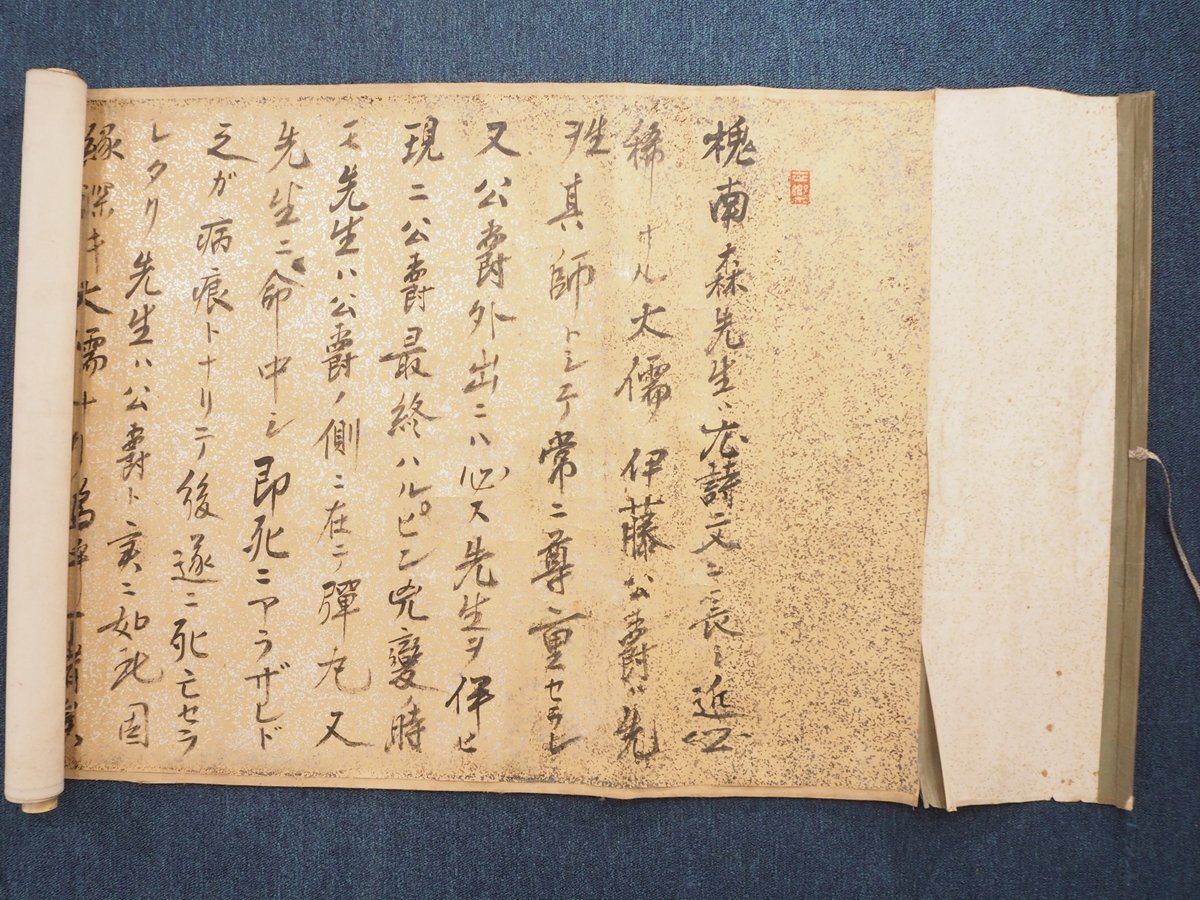 槐南森先生ハ尤詩文ニ長シ近世
稀ナル大儒伊藤公爵ハ先
生ヲ其師トシテ常ニ尊重セラレ
又公爵外出ニハ必ス先生ヲ伴ヒ
現ニ公爵最終ハルピン兇変時
モ先生ハ公爵ノ側ニ在テ弾丸又
先生ニ命中シ即死ニアラザレド
之ガ病痕トナリテ後遂ニ死亡セラ
レタリ先生ハ公爵ト実ニ如此因
縁深キ大儒ナリ